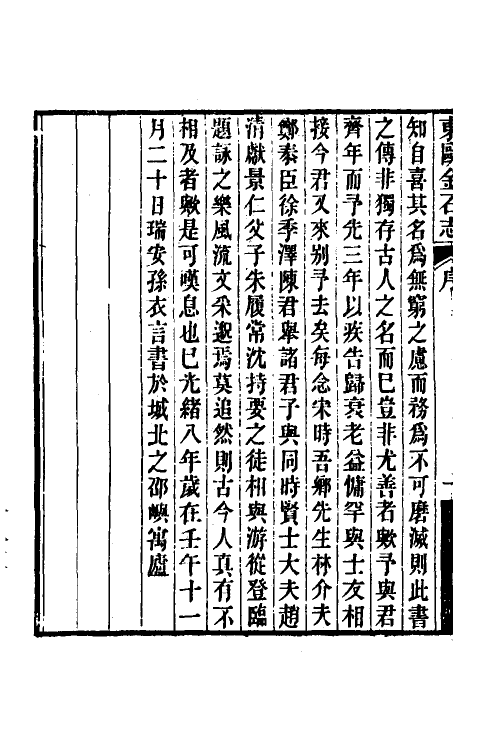 東甌金石志 序
知自喜其名爲無窮之慮而務爲不可磨滅則此書
之傳非獨存古人之名而已豈非尤善者歟予與君
齊年而予先三年以疾告歸衰老益慵罕與士友相
接今君又來别予去矣每念宋時吾鄉先生林介夫
鄭泰臣徐季澤陳君舉諸君子與同時賢士大夫趙
清獻景仁父子朱履常沈持要之徒相與游從登臨
題詠之樂風流文采邈焉莫追然則古今人真有不
相及者歟是可嘆息也已光緒八年歲在壬午十一
月二十日瑞安孫衣言書於城北之邵嶼寓廬